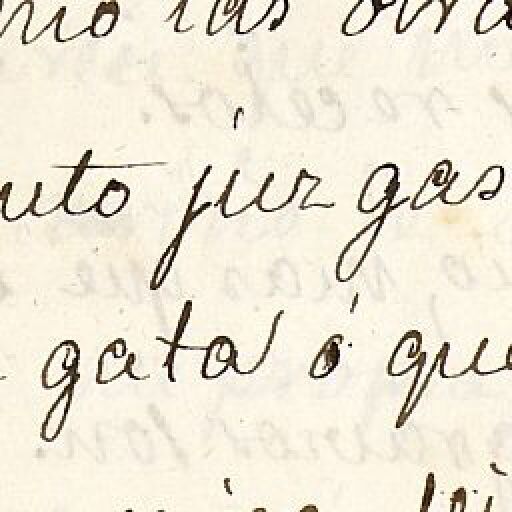 mo las otra
uto juzgas
gata ó que